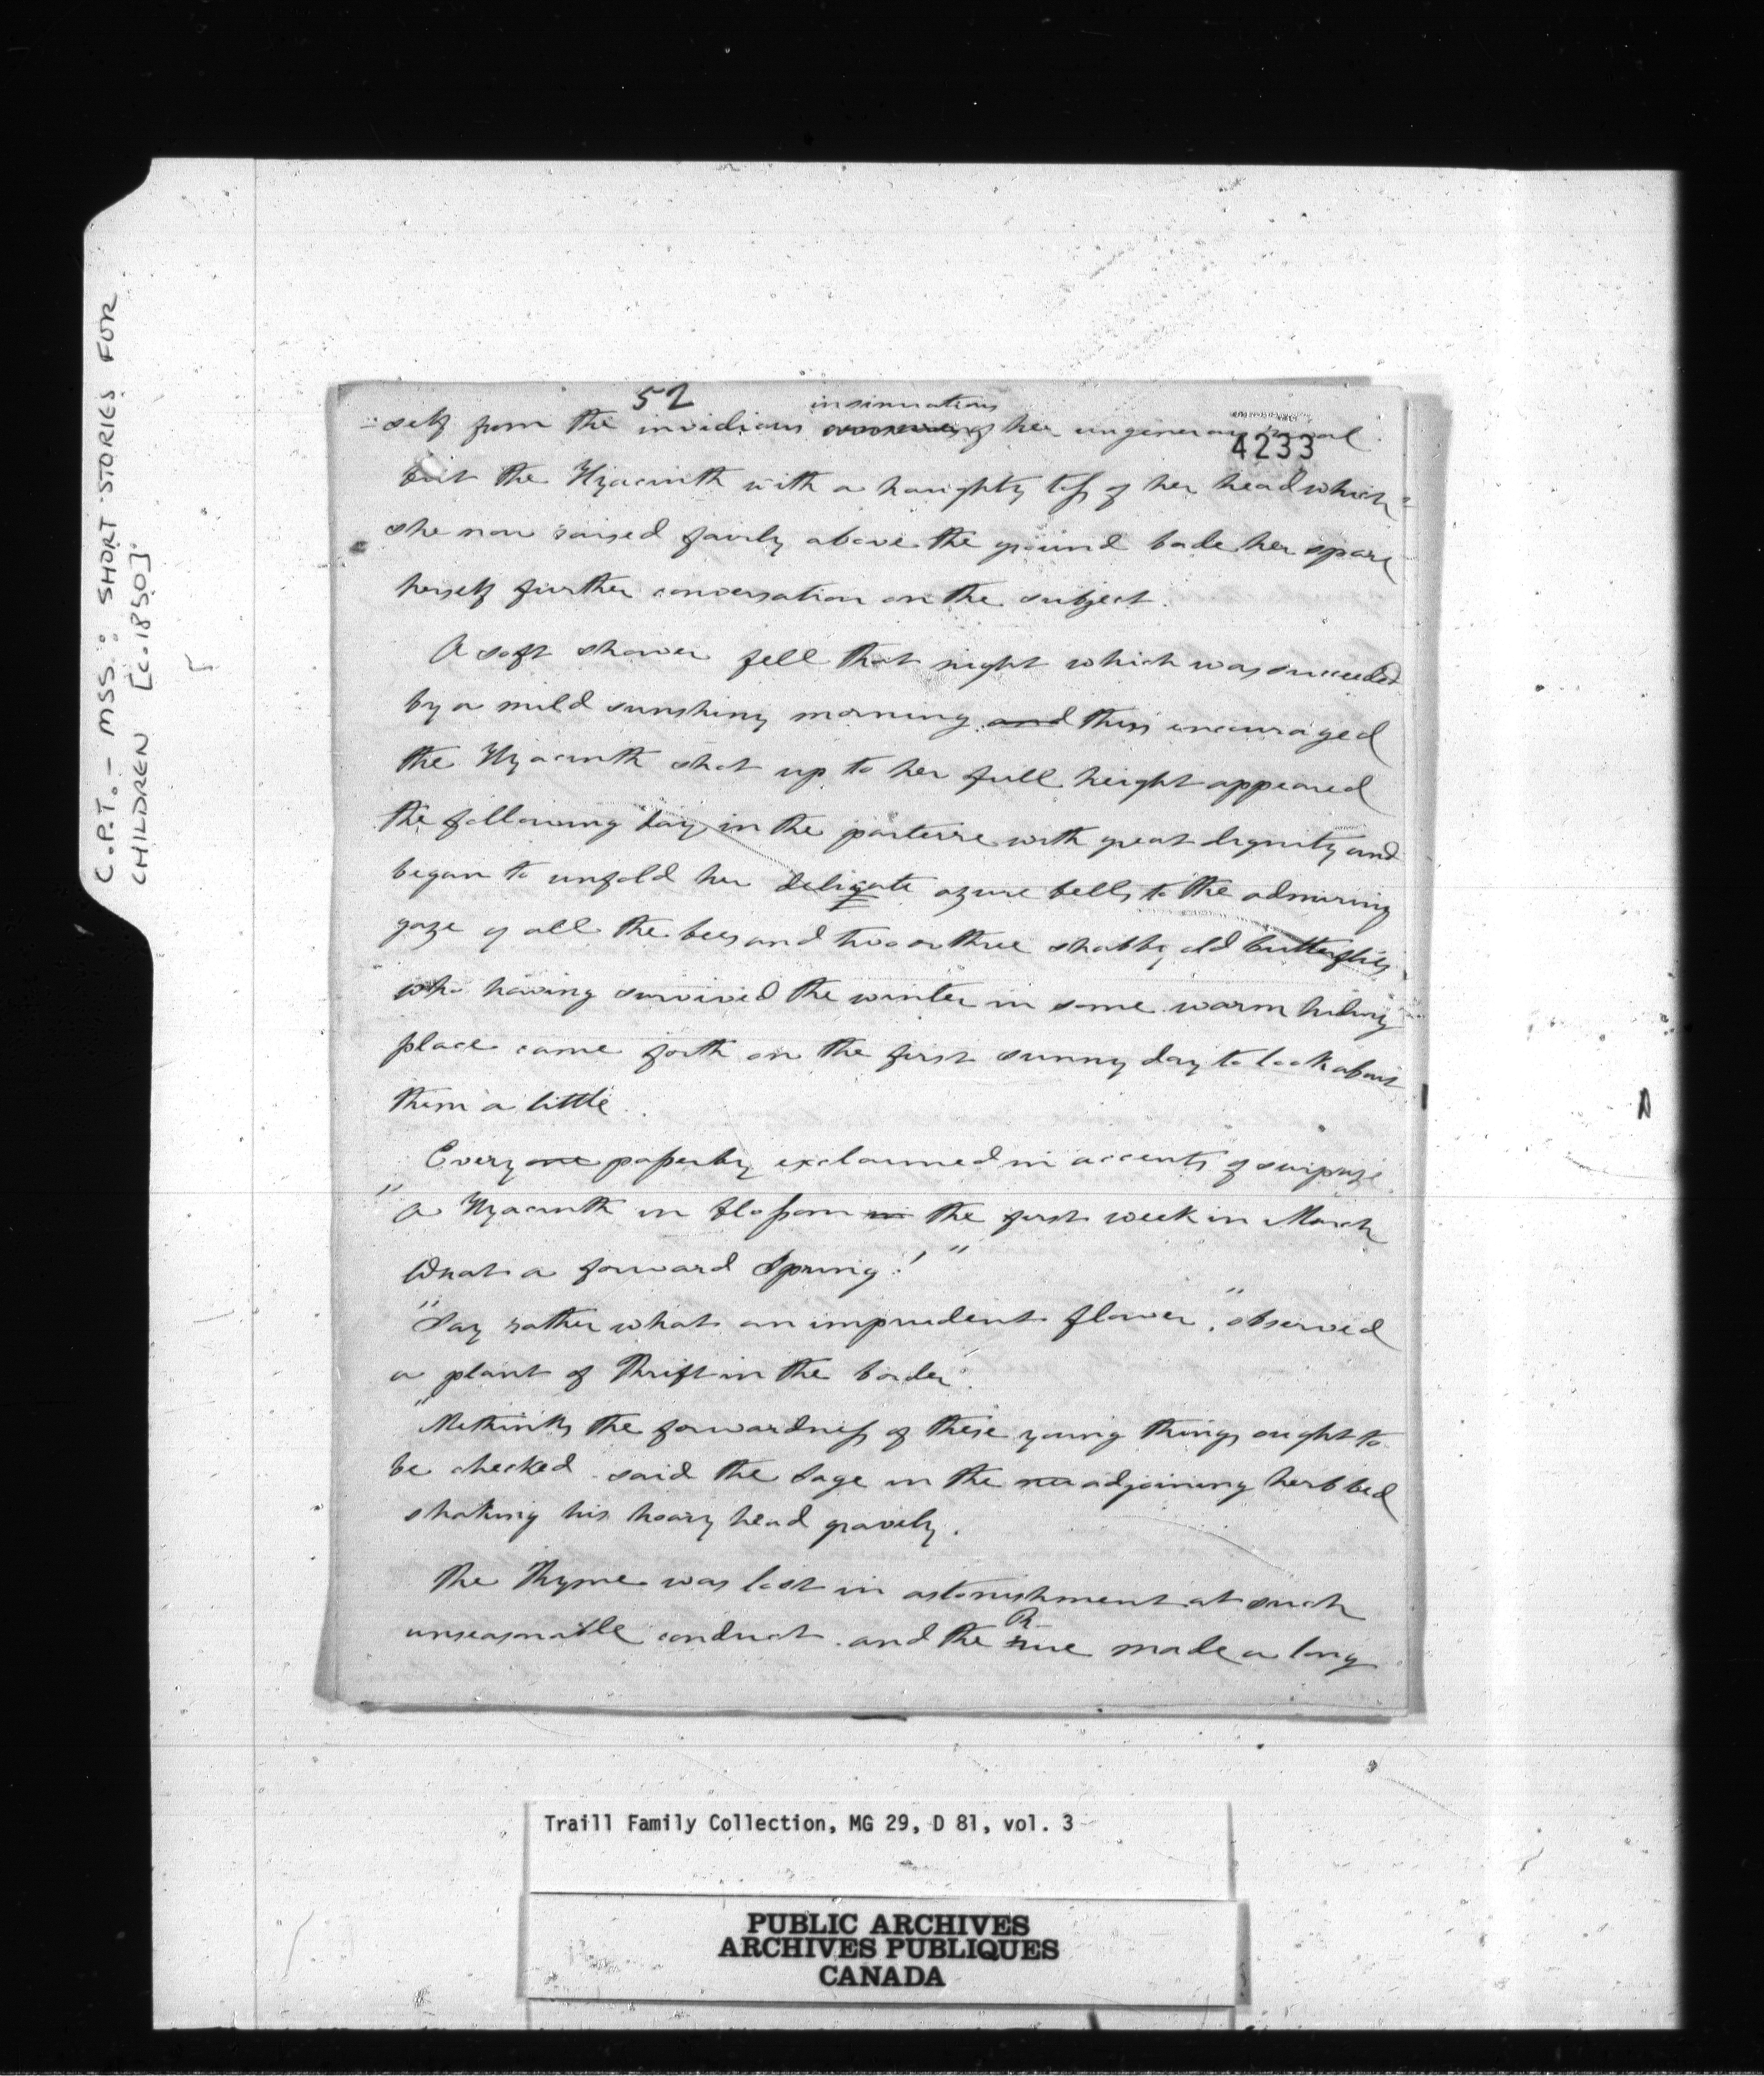 C.P.T. - MSS.: SHORT STORIES FOR
CHILDREN [c.1850].
52
4233
insinuations
=self from the invidious of her ungenerous rival.
But the Hyacinth with a haughty toss of her head which
she now raised fairly above the ground bade her spare
herself further conversation on the subject.
A soft shower fell that night which was succeeded
by a mild sunshiny morning and thus encouraged
the Hyacinth shot up to her full height appeared
the following day in the parterre with great dignity and
began to unfold her delicate azure bells to the admiring
gaze of all the bees and two or three shabby old butterflies
who having survived the winter in some warm hiding
place came forth on the first sunny day to look about
them a little.
Every one passerby exclaimed in accents of surprise
"A Hyacinth in blossom in the first week in March
What a forward Spring!"
"Say rather what an imprudent flower", observed
a plant of Thrift in the border.
"Methinks the forwardness of these young things ought to
be checked said the Sage in the adjoining herb bed
shaking his hoary head gravely.
The Thyme was lost in astonishment at such
R
unseasonable conduct and the rue made a long
Traill Family Collection, MG 29, D 81, vol. 3
PUBLIC ARCHIVES
ARCHIVES PUBLIQUES
CANADA